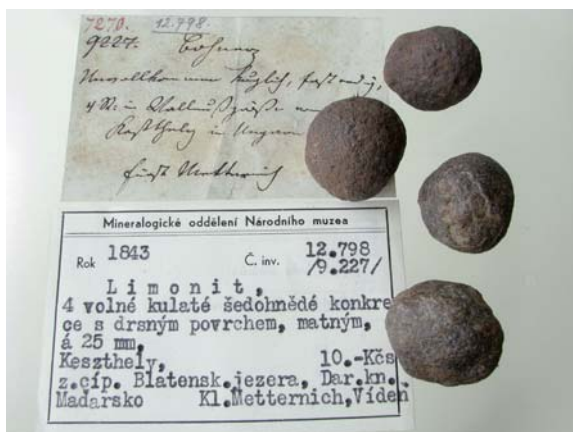 7270. 12.798.
9227. Bohnerz
Unvollkommen kuglich, fast
4 St: in Wallnußgröße
Keszthely in Ungarn
Fürst Metternich
Mineralogické oddělení Národního muzea
Rok 1843 Č. inv. 12.798
/9.227/
Limonit,
4 volné kulaté šedohnědé konkre
ce s drsným povrchem, matným,
á 25 mm.
Keszthely, 10.-Kčs
z.cíp. Blatensk.jezera, Dar.kn.
Maďarsko Kl.Metternich,Vídeň